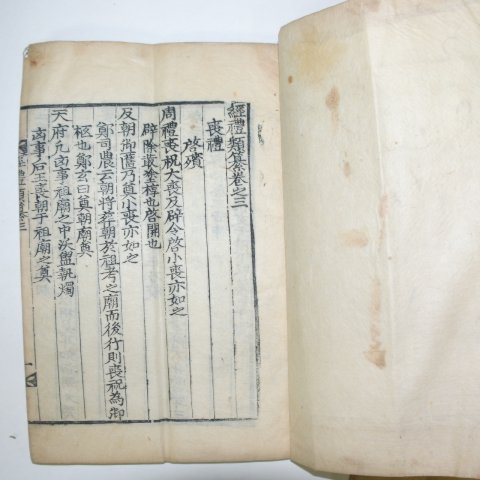 經禮類纂卷之三
喪禮
啓殯
周禮喪祝大喪及辟令啓小喪亦如之
辟除菆塗椁也啓開也
反朝御匶乃奠小喪亦如之
鄭司農云朝將葬朝於祖考之廟而後行則喪祝為御
柩也鄭玄曰奠朝廟奠
天府凡凶事祖廟之中沃盥執燭
凶事后王喪朝于祖廟之奠
經禮類纂卷三
一